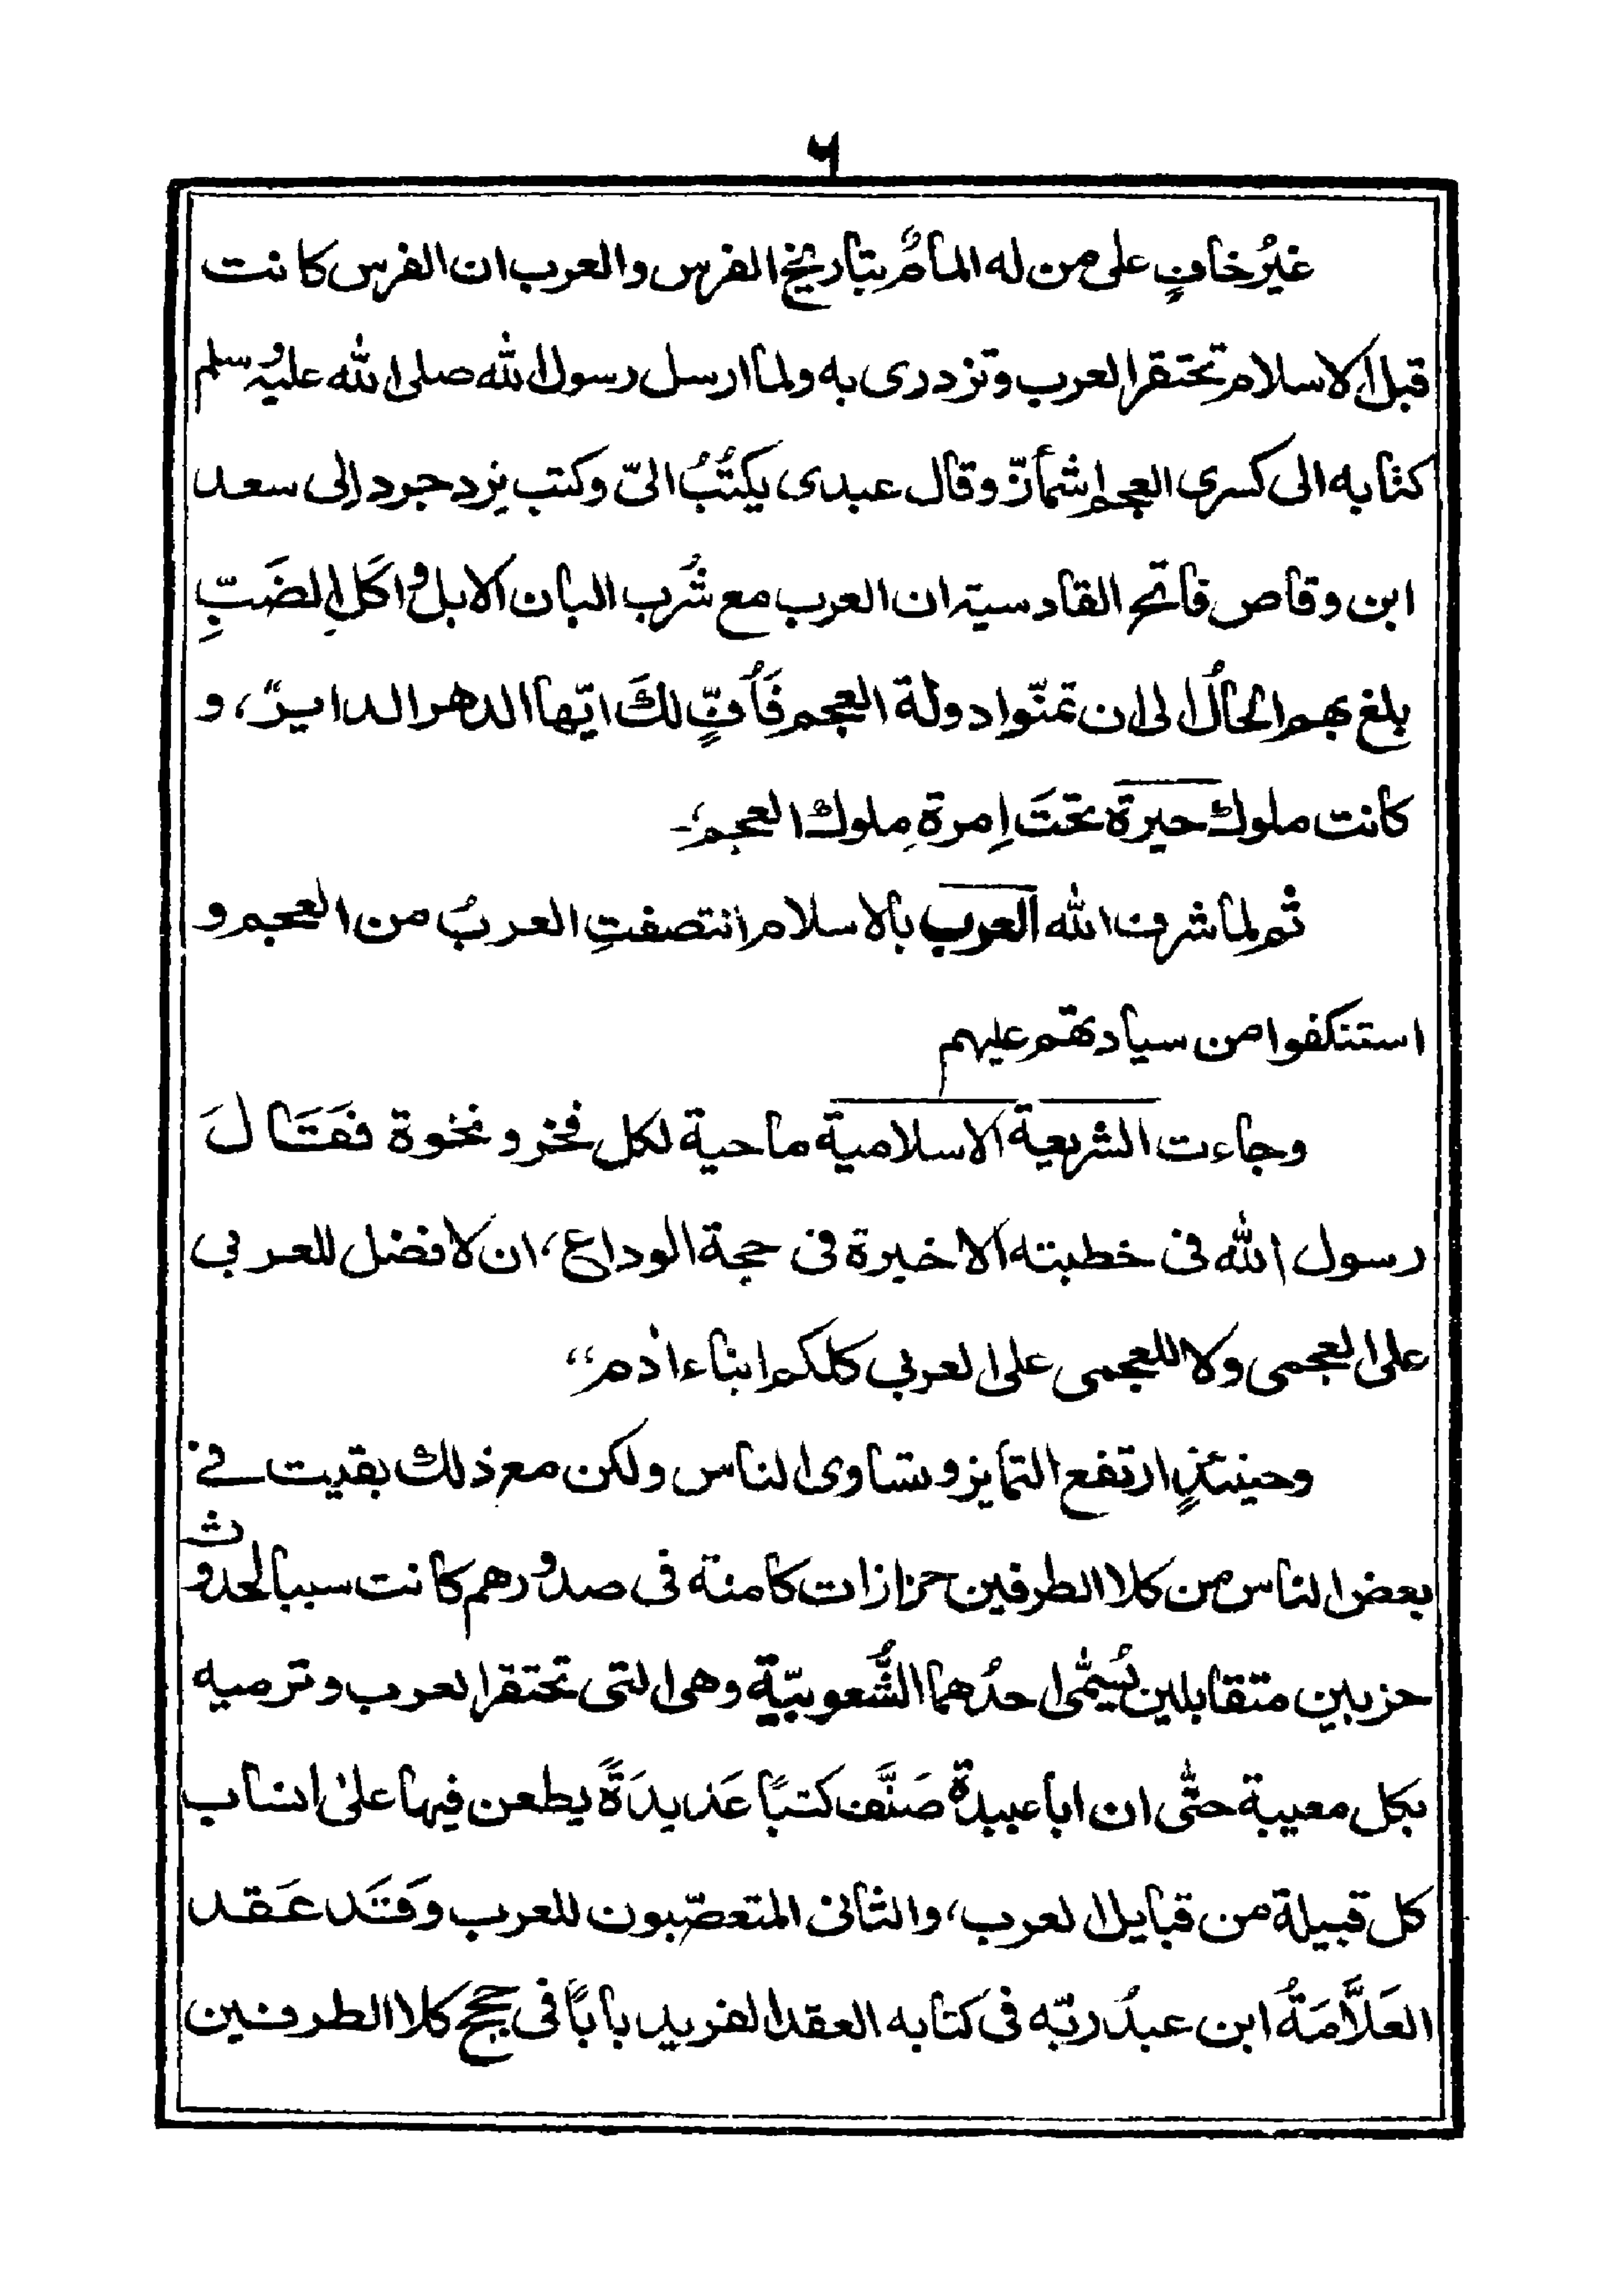 ۶
غيرُ خافٍ على من له المامٌ بتاريخ الفرس والعرب ان الفرس كانت
قبل الاسلام تحتقر العرب وتزدرى به ولما ارسل رسول الله صلى الله عليه وسلم
كتابه الى كسرى العجم اشمأزّ وقال عبدى يكتُبُ الىّ وكتب يزد جرد الى سعد
ابن وقاص فاتح القادسية ان العرب مع شُرب البان الابل واكل الضَبِّ
بلغ بهم الحالُ الى ان تمنّوا دولة العجم فَأُفٍّ لكَ ايّها الدهر الدايرُ، و
كانت ملوك حيرة تحتَ اِمرة ملوك العجم،-
ثم لما شرف الله العرب بالاسلام انتصفتِ العربُ من العجم و
استنكفوا من سيادتهم عليهم
وجاءت الشريعة الاسلامية ماحية لكل فخر و نخوة فَقَالَ
رسول الله فى خطبته الاخيرة فى حجة الوداع، ان لا فضل للعربي
على العجمى ولا للعجمى على العربي كلكم ابناء اٰدم“
وحينئذٍ ارتفع التمايز وتساوى الناس ولكن مع ذلك بقيت فے
بعض الناس من كلا الطرفين حزازات كامنة فى صدورهم كانت سببا لحدوث
حزبين متقابلين يُسمّٰى احدُهما الشُّعوبيّة وهى التى تحتقر العرب وترميه
بكل معيبة حتّٰى ان ابا عبيدة صَنَّف كتبًا عَديدَةً يطعن فيها علىٰ انساب
كل قبيلة من قبايل العرب، والثانى المتعصّبون للعرب وقَد عَقد
العَلاَّمَةُ ابن عبدُ ربّه فى كتابه العقد الفريد بابًا فى حجج كلا الطرفين